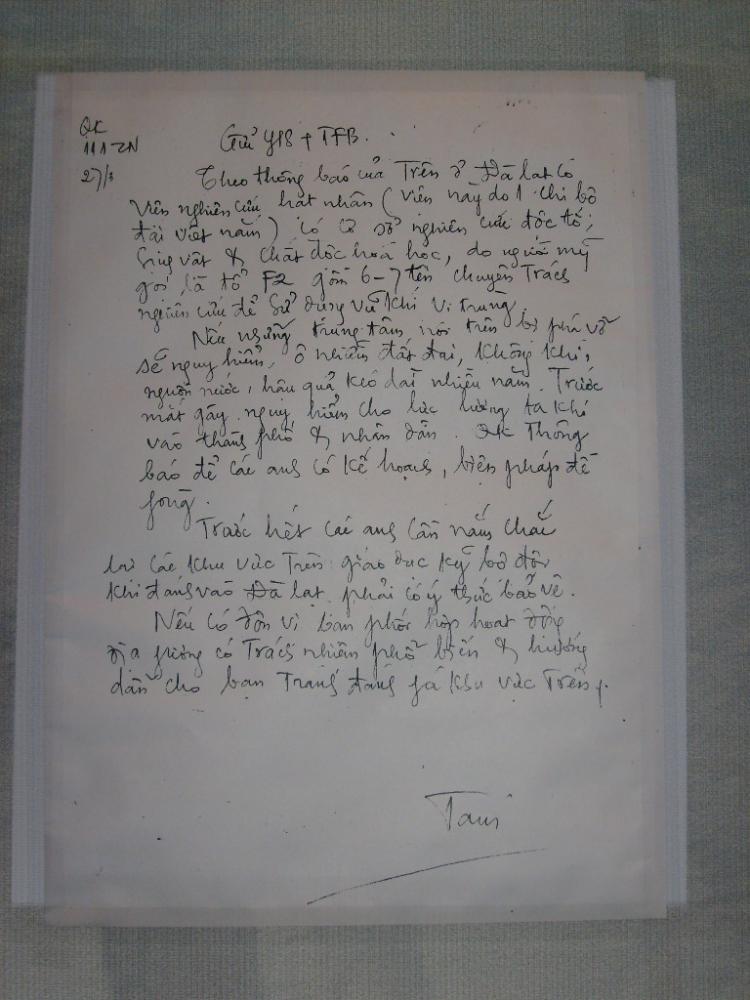 QK
111-ZN
27/3
Gửi Y18 + TFB.
Theo thông báo của Trên ở Đà lạt có
Viện nghiên cứu hạt nhân (Viện này do 1 chi bộ
đại việt nắm) có cơ sở nghiên cứu độc tố,
Sinh vật & chất độc hoá học, do người mỹ
gọi là tổ F2 gồm 6-7 tên chuyên Trách
nghiên cứu để sử dụng vũ khí vi trùng.
Nếu những trung tâm nói trên bị phá vỡ
sẽ nguy hiểm, ô nhiễm đất đai, không khí,
nguồn nước, hậu quả kéo dài nhiều năm. Trước
mắt gây nguy hiểm cho lực lượng ta khi
vào thành phố & nhân dân. QK Thông
báo để các anh có kế hoạch, biện pháp đề
fòng.
Trước hết các anh cần nắm chắc
lại các khu vực Trên giáo dục kỹ bộ đội
khi đánh vào Đà lạt phải có ý thức bảo vệ.
Nếu có đơn vị bạn phối hợp hoạt động
địa fương có Trách nhiệm phổ biến & hướng
dẫn cho bạn Tránh đánh fá khu vực Trên.